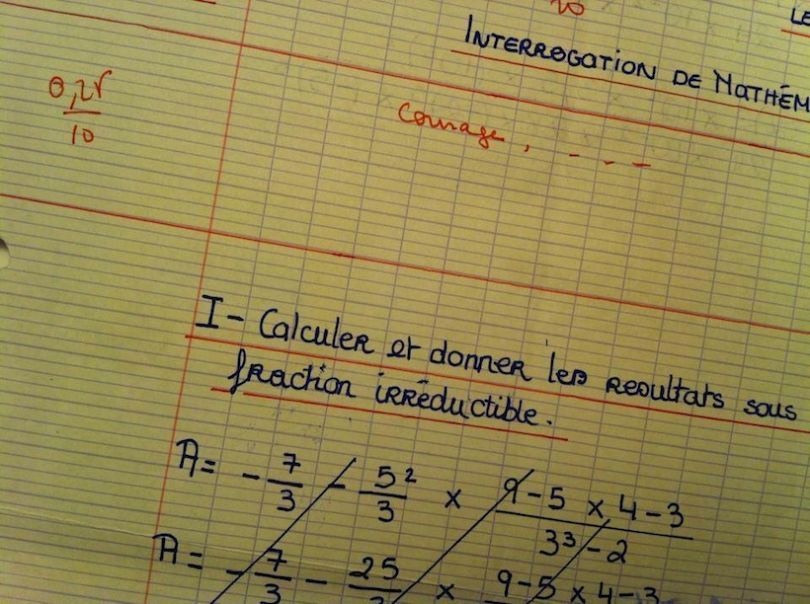 20
LE
INTERROGATION DE MATHÉM
0,25
10
Courage, - - - -
I - Calculer et donner les resultats sous
fraction irréductible.
A = - 7/3 - 5²/3 × (9 - 5 × 4 - 3)/(3³ - 2)
A = - 7/3 - 25/3 × 9 - 5 × 4 - 3